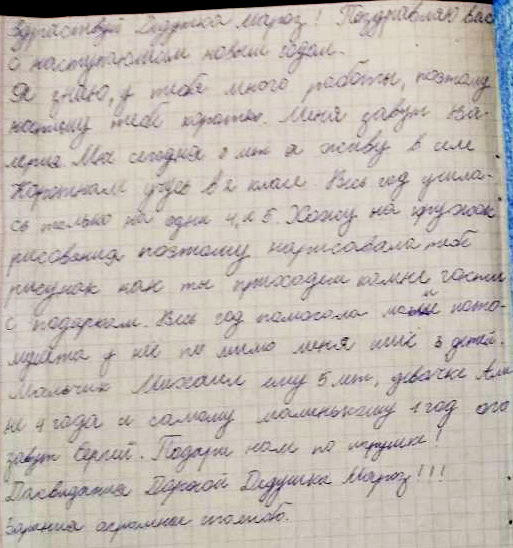 Здраствуй Дедушка Мароз! Поздравляю вас
с наступающим новым годом.
Я знаю, у тебя много работы, поэтому
напишу тебе коротко. Меня завут Ва-
лерия Мне сегодня 8 лет я живу в селе
учусь в 2 класе. Весь год училa-
сь только на одни 4, и 5. Хожу на кружок
рисования поэтому нарисовала тебе
рисунак как ты приходеш камне гости
с подаркам. Весь год памогала маме пото-
мушта у неё по мимо меня ищё 3 детей.
Мальчик Михаил ему 5 лет, девочке Али
не 4 года и самому маленькому 1 год его
завут Сергей. Подари нам по игрушке!
Дасвидания Дорогой Дедушка Мароз!!!
Зарания огромное спасибо.